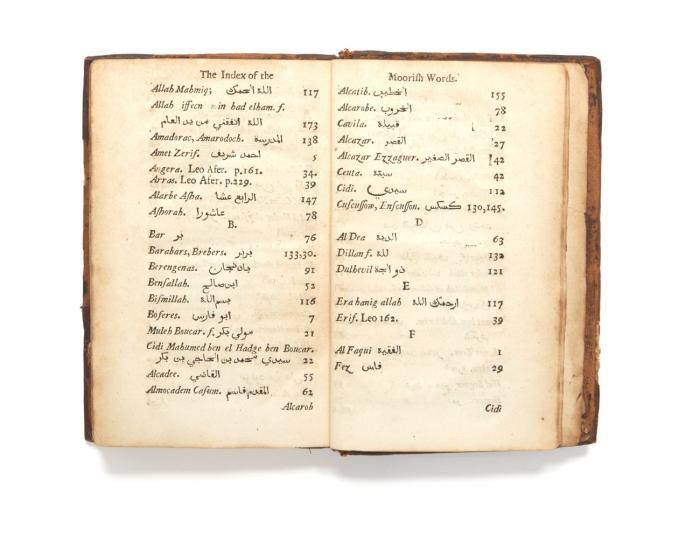 The Index of the
Allah Mahmiq; الله الحمك 117
Allah iffecn in had elham. f.
الله انفقني من بن العام 173
Amadorac, Amarodoch. المدرسة 138
Amet Zerif. احمد شريف 5
Angera. Leo Afer. p.161. 34.
Arras. Leo Afer. p.229. 39
Alarbe Asha. الرابع عشا 147
Ashorah. عاشورا 78
B.
Bar بر 76
Barabars, Brebers. بربر 133.30.
Berengenas. باذنجان 91
Bensallah. ابن صالح 52
Bismillah. بسم الله 116
Boferes. ابو فارس 7
Muleh Boucar. f. مولي بكر 21
Cidi Mahumed ben el Hadge ben Boucar.
سيدي محمد بن الحاجي بن بكر 22
Alcadee. القاضي 55
Almocadem Casim. المقدم قاسم 62
Alcarob
Moorish Words.
Alcatib. الخطيب 155
Alcarobe. الخروب 78
Cavila. قبيلة 22
Alcazar. القصر 27
Alcazar Ezzaguer. القصر الصغير 42
Ceuta. سبتة 42
Cidi. سيدي 112
Cuscussow, Cuscusson. كسكس 130,145.
D
Al Dea الدية 63
Dillan f. لله 132
Dulhevil ذو الحجة 121
E
Era hanig allah ارحمك الله 117
Erif. Leo 162. 39
F
Al Faqui الفقيه 1
Fez فاس 29
Cidi